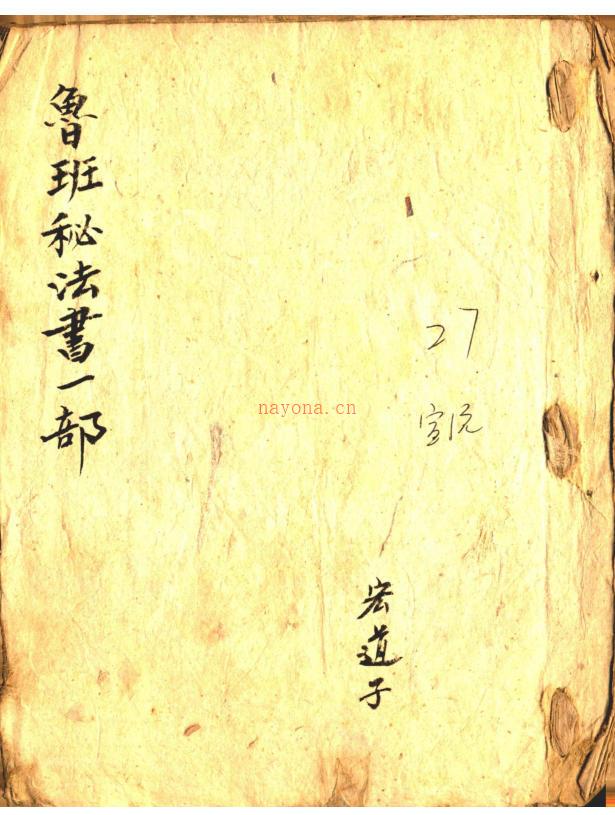 魯班秘法書一部
27
宣统
宏道子
nayona.cn